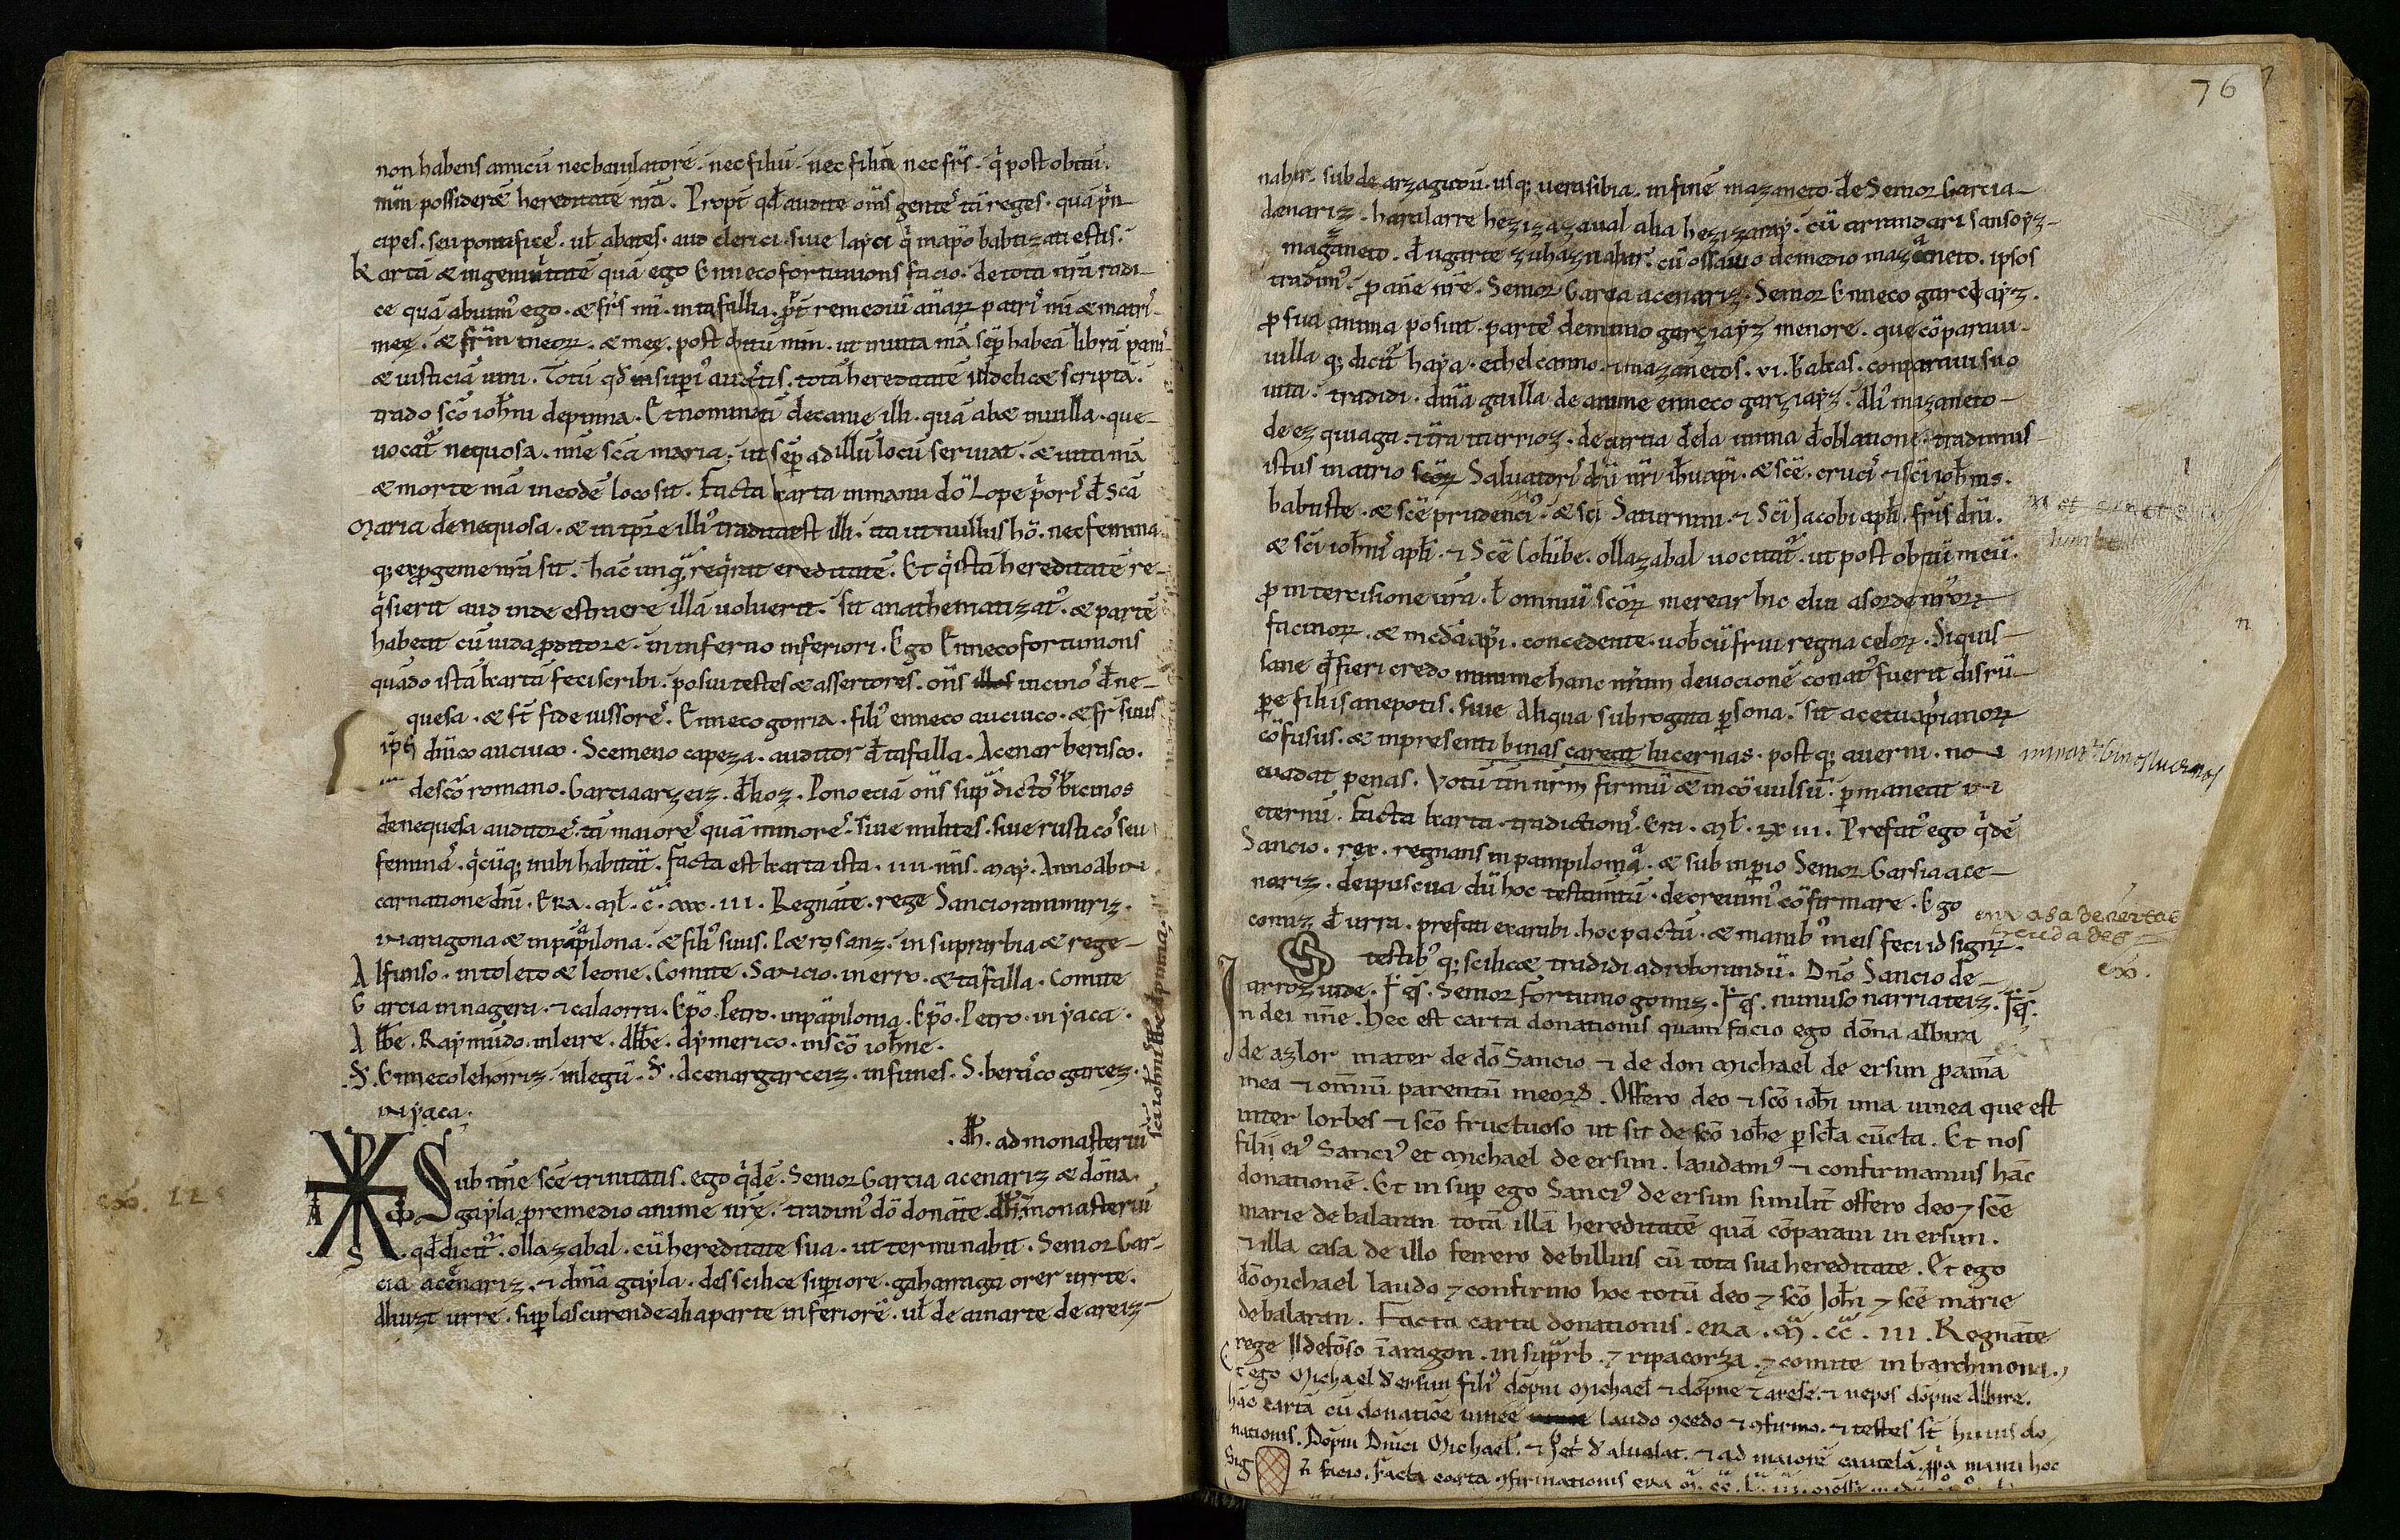 non habens amicū nec baiulatorē. nec filiū. nec filiā nec frīs. q̇ post obitū.
mm̄ possiderēt hereditatē mā. Propt̄ qđ audite om̄s gentes tā reges. quā p̄n
cipes. seu pontifices. uł abates. aud clerici. siue layci q̇ in xp̄o babtizati estis.
kartā & ingenuitatē quā ego Enneco fortunions facio. de tota mā radi
ce quā abuim᷒ ego. & frīs mī. in tafallia. pp̄t remediū ānarꝝ patris mī & matris
meę. & frm̄ meorꝝ. & meę. post obitū mm̄. ut in uita mā sēp habeā librā panis
& iusticiā uini. Totū qđ insuperi᷒ auditis. totā hereditatē uidelicæ scriptā.
trado scō ioħni de pinna. Et nominati de carne illi. quā abæ in uilla. que
uocat᷒ nequosa. nn̄e scā maria. ut sēp ad illū locū seruiat. & uita mā
& morte mā in eodē loco sit. Facta karta in manu dō Lope p̄oris đ Scā
Maria de nequosa. & in tp̄re illi᷒ tradita est illi. ita ut nullus hō. nec femina.
q; ex progenie mā sit. hāc unq̄ req̇rat ereditatē. Et q̇ istā hereditatē re
q̇sierit aud inde estraere illā uoluerit. sit anathematizat᷒. & partē
habeat cū iuda proditore. in inferno inferiori. Ego Enneco fortunions
quādo istā kartā feci scribi. posui testes & assertores. om̄s uicinos đ ne
quesa. & st̄ fide iussores. Enneco gomia. fili᷒ enneco auciuco. & fr̄ suus
diūco auciuco. Scemeno capeza. auditor đ tafalla. Acenar berasco.
de scō romano. Garcia arceiz. đ koz. Pono etiā om̄s sup̄dictos bicinos
de nequesa auditores. tā maiores quā minores. siue milites. siue rusticos seu
feminas. q̇cūq; inibi habitāt. Facta est karta ista. IIII. nn̄s. May. Anno ab in
carnatione dn̄i. ERA. Mł. c̄. xxx. III. Regnāte. rege Sancio ranimiriz.
in aragona & in pāpilona. & fili᷒ suus. Pæro sanz. in suprarbia & rege
Alfonso. in toleto & leone. Comite. Sancio. in erro. & tafalla. Comite
Garcia in nagera. & calaorra. Ep̄o. Petro. in pāpilona. Ep̄o. Petro. in yaca.
Abbe. Raymūdo. in leire. Abbe. Aymerico. in scō ioħne.
S. Enneco lehoiriz. in legū. S. Acenar garceiz. in funes. S. beraco garcez.
in yaca.
ad monasteriū
sci ioħnis
Sub nn̄e scē trinitatis. ego q̇dē. Senior Garcia acenariz & dōna
gayla p remedio anime nrē. tradim᷒ dō donāte. monasteriū
qđ dicit᷒. ollazabal. cū hereditate sua. ut terminabit. Senior Gar
cia acenariz. & dn̄a gayla. des scilice superiore. gaharraga orer urrte.
Abuzt urre. sup lascurende alia parte inferiore. uł de ainarte de areiz
ex.
76
nabar. sub de arzagitou. usq; uerasibia. in finē mazaneto de Senior Garcia
denariz. haralarre hezizazaual alia hezizaray. cū arrandari sansoyz
magāneto. đ ugarte zuhaznabar. cū ossauio de medio mazāneto. ipsos
tradim᷒. p aīne nrē. Senior Garcia acenariz. Senior Enneco garceayz.
p sua anima posuit. partes de nunno garciayz menore. que cōparaui
uilla q; dicit᷒ haya. et helcanno. & mazanetos. VI. kabas. comparaui suo
uita. tradidi. dn̄a gailla de anime enneco garciayz. Ali᷒ mazaneto
de ezquiaga. & itturrioz. de curtia de la uinna đ oblationes. tradimus
istus in atrio scōrꝝ Saluatoris dn̄i nr̄i ih̄u xp̄i. & scē. crucis & sci ioħnis.
babtiste. & scē prudenci᷒. & sci Saturnini. & Sci Jacobi apłi. frīs dn̄i.
& sci ioħnis apłi. & Scē Colūbe. ollazabal uocitat᷒. ut post obitū meū.
p intercisione urā. ł omniū scōrꝝ merear hic elui a sorde mōrꝝ
facinorꝝ. & in cđa xp̄i. concedente. uobcū frui regna celorꝝ. Siquis
sane qđ fieri credo minime hanc nrām deuocionē conat᷒ fuerit disrū
pe filiis anepotis. siue Aliqua subrogata psona. sit a cetu xp̄ianorꝝ
cōfusus. & in presenti binas careat lucernas. postq; auerni. no
euadat penas. Votū tn̄ nrm̄ firmū & incōuulsū. pmaneat in
eternū. Facta karta. tradictionis. Era. Mł. lx III. Prefat᷒ ego q̇dē
Sancio. rex. regnans in pampilonia. & sub inperio Senior Garsia ace
nariz. de ipuscua dū hoc testamtū. decreuim᷒ cōfirmare. Ego
comiz. đ urra. prefati exarabi. hoc pactū. & manib᷒ meis feci id signꝝ.
testib᷒ q; scilicæ tradidi ad roborandū. Dn̄o Sancio de
arrozuide. Senior fortunio gomiz. nunuso narriateiz.
In dei nn̄e. Hec est carta donationis quam facio ego dōna albira
de azlor mater de dō Sancio & de don Michael de ersun p aīma
mea & omniū parentū meorꝝ. Offero deo & scō ioħi una uinea que est
inter lorbes & scō fructuoso ut sit de scō ioħe p scła cūcta. Et nos
filij ei᷒ Sanci᷒ et Michael de ersun. laudam᷒ & confirmamus hāc
donationē. Et in sup ego Sanci᷒ de ersun similit̄ offero deo & scē
marie de balaran totā illā hereditatē quā cōparaui in ersun.
& illa casa de illo ferrero de billius cū tota sua hereditate. Et ego
dō Michael laudo & confirmo hoc totū deo & scō Joħi & scē marie
de balaran. Facta carta donationis. ERA. M̄. c̄c̄. III. Regnāte
rege Ildefōso ī aragon. in sup̄rb. & ripacorza. & comite in barchinona.
Et ego Michael d'ersun fili᷒ dōpni Michael & dōpne Tarese. & nepos dōpne Albire.
hāc cartā cū donatiōe uinee laudo 9cedo & 9firmo. & testes st̄ huius do
nationis. Dōpni Dinici Michael. & Pet᷒ d'alualat. & ad maiorē cautelā. pp̄a manu hoc
Sig nū facio. Facta carta 9firmationis era